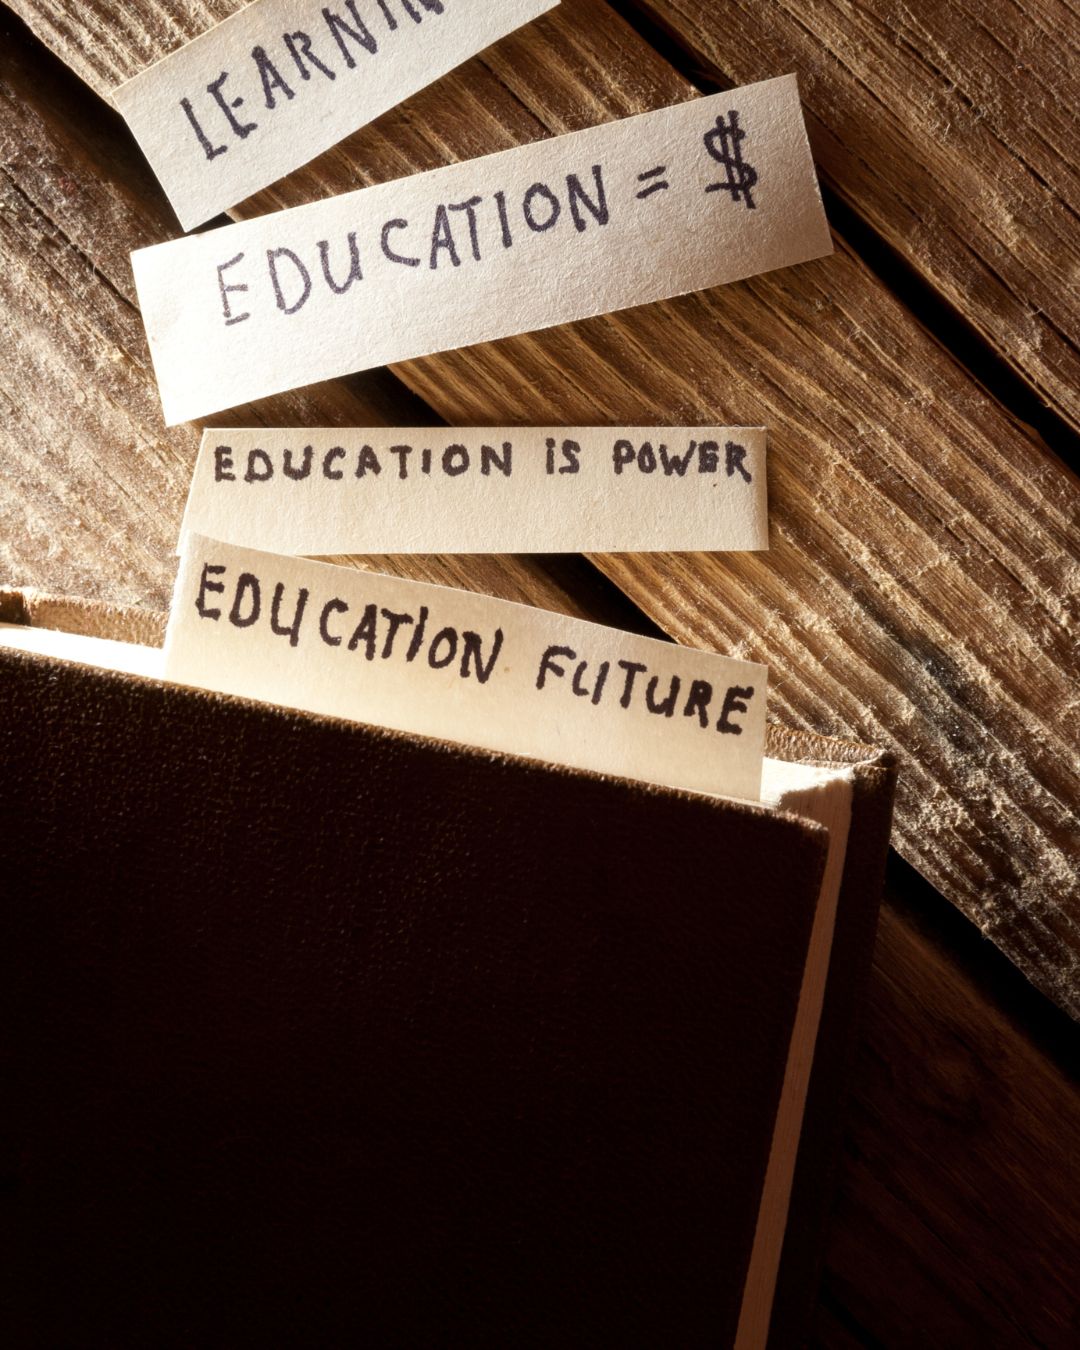 LEARNIN
EDUCATION = $
EDUCATION IS POWER
EDUCATION FUTURE